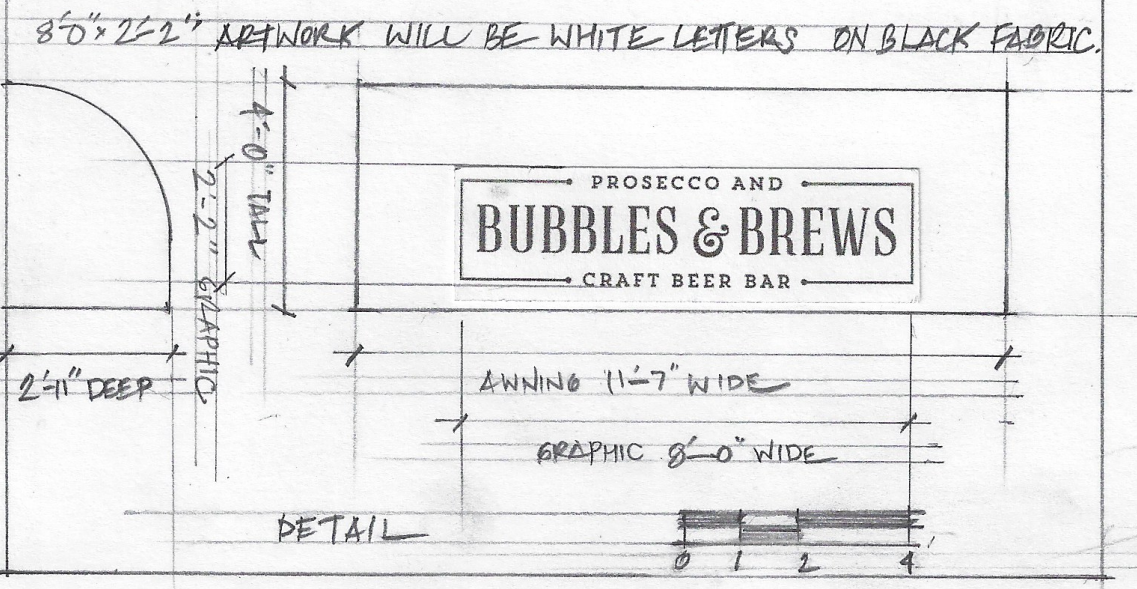 8'-0" x 2'-2" ARTWORK WILL BE WHITE LETTERS ON BLACK FABRIC.
4'-0" TALL
2'-2" GRAPHIC
PROSECCO AND
BUBBLES & BREWS
CRAFT BEER BAR
2'-11" DEEP
AWNING 11'-7" WIDE
GRAPHIC 8'-0" WIDE
DETAIL
0 1 2 4'